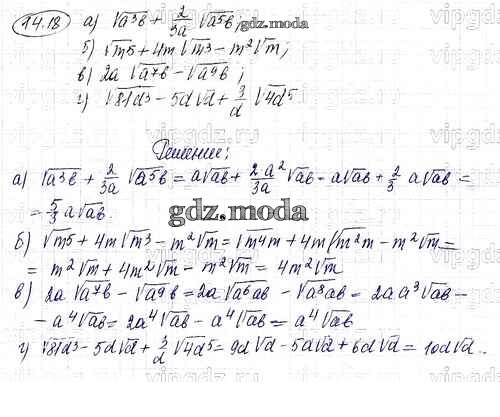 14.18 а) √a³b + 2/3a √a⁵b;
gdz.moda
б) √m5 + 4m√m3 - m²√m;
в) 2a √a⁷b - √a⁹b;
г) √81d³ - 5d√d + 3/d √4d⁵
Решение:
а) √a³b + 2/3a √a⁵b = a√ab + 2a²/3a √ab = a√ab + 2/3 a√ab =
= 5/3 a√ab.
gdz.moda
б) √m5 + 4m√m3 - m²√m = √m4m + 4m√m²m - m²√m =
= m²√m + 4m²√m - m²√m = 4m²√m
в) 2a √a⁷b - √a⁹b = 2a √a⁶ab - √a⁸ab = 2a a³√ab -
- a⁴√ab = 2a⁴√ab - a⁴√ab = a⁴√ab
г) √81d³ - 5d√d + 3/d √4d⁵ = 9d√d - 5d√d + 6d√d = 10d√d.